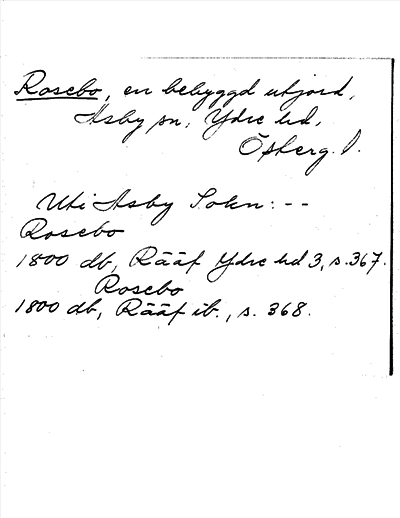 Rosebo, en bebyggd utjord,
Asby sn, Ydre hd,
Österg. l.
Uti Asby Sokn: --
Rosebo
1800 db, Rääf Ydre hd 3, s. 367.
Rosebo
1800 db, Rääf ib., s. 368.